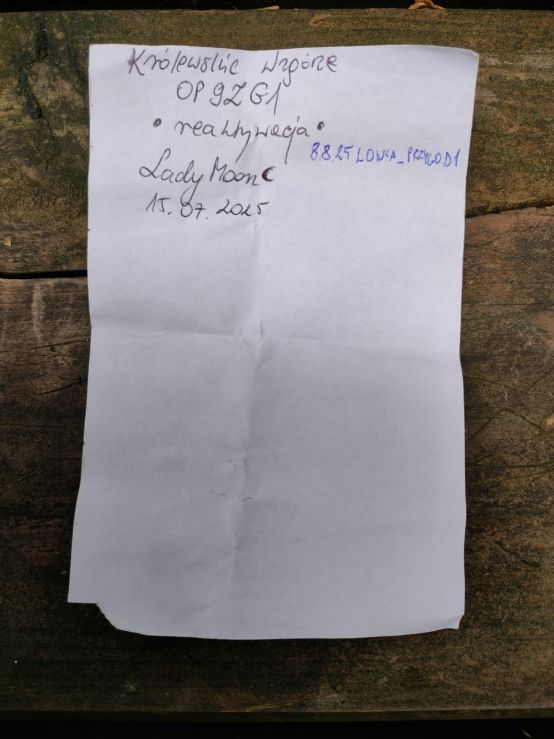 Królewskie Wzgórze
OP9ZG1
• reaktywacja •
Lady Moon
15.07.2025
8.8.25 LOWCA_PRZYGOD1